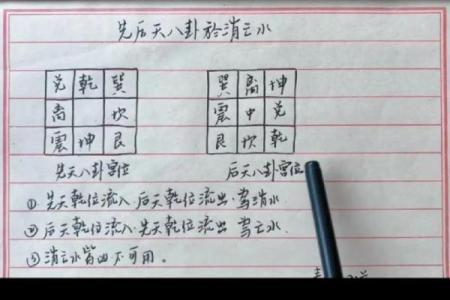 先后天八卦於消亡水
兑 乾 巽
离 坎
震 坤 艮
巽 离 坤
震 中 兑
艮 坎 乾
先天八卦宫位
后天八卦宫位
①先天乾位流入后天乾位流出.为消水
②后天乾位流入先天乾位流出 为亡水
③消亡水皆凶不可用。